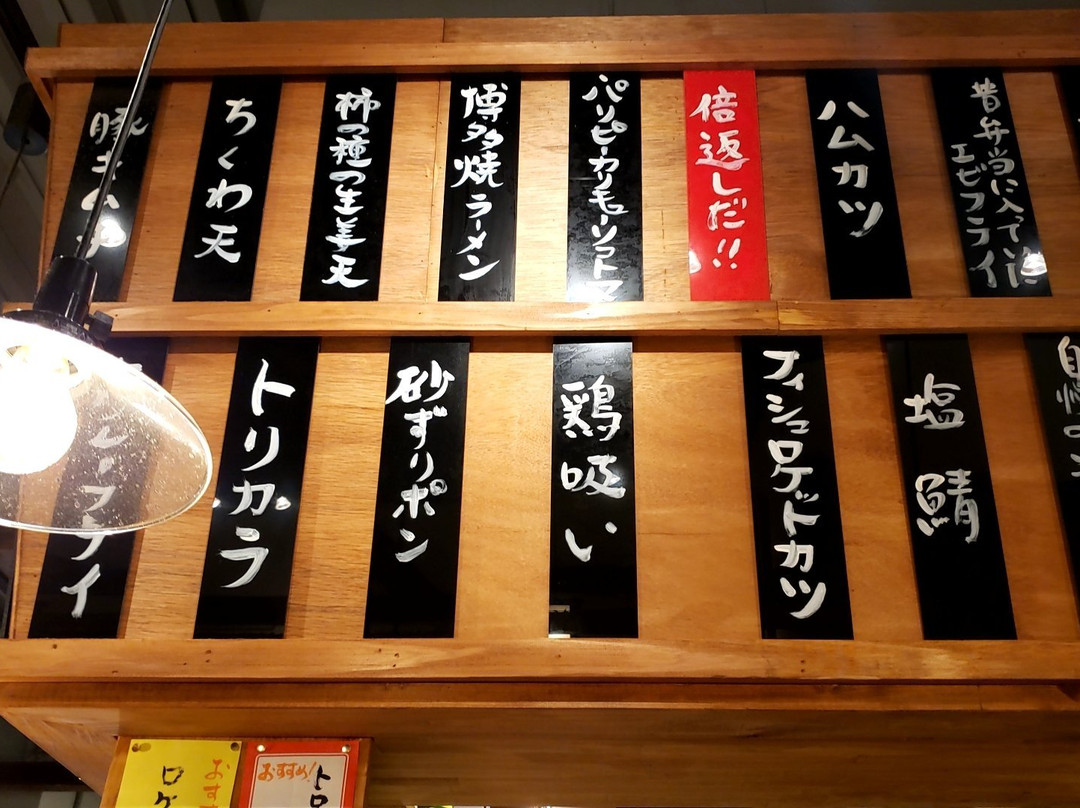 豚キムチ
ちくわ天
柿の種の生姜天
博多焼ラーメン
パリピーカリモーソフト
倍返しだ!!
ハムカツ
昔弁当に入って
エビフライ
フライ
トリカラ
砂ずりポン
鶏吸い
フィシュロゲットカツ
塩鯖
自慢の
おす
ログ
おすすめ!
トロ